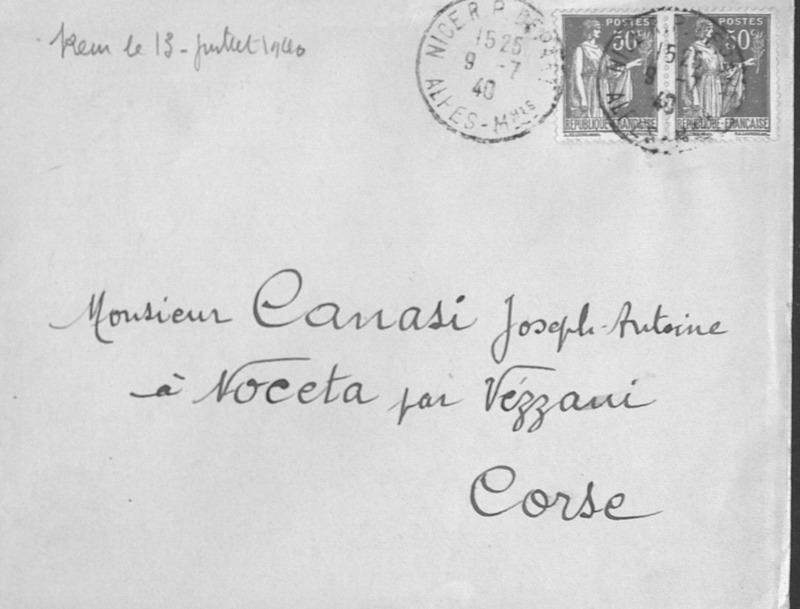 Reçu le 13 - juillet 1940
NICE R.P. DEPART
15 25
9 -7
40
ALPES-Mmes
POSTES
50c
RÉPUBLIQUE FRANÇAISE
POSTES
50c
RÉPUBLIQUE FRANÇAISE
NICE R.P. DEPART
15 25
9 -7
40
ALPES-M
Monsieur Canasi Joseph-Antoine
à Noceta par Vézzani
Corse